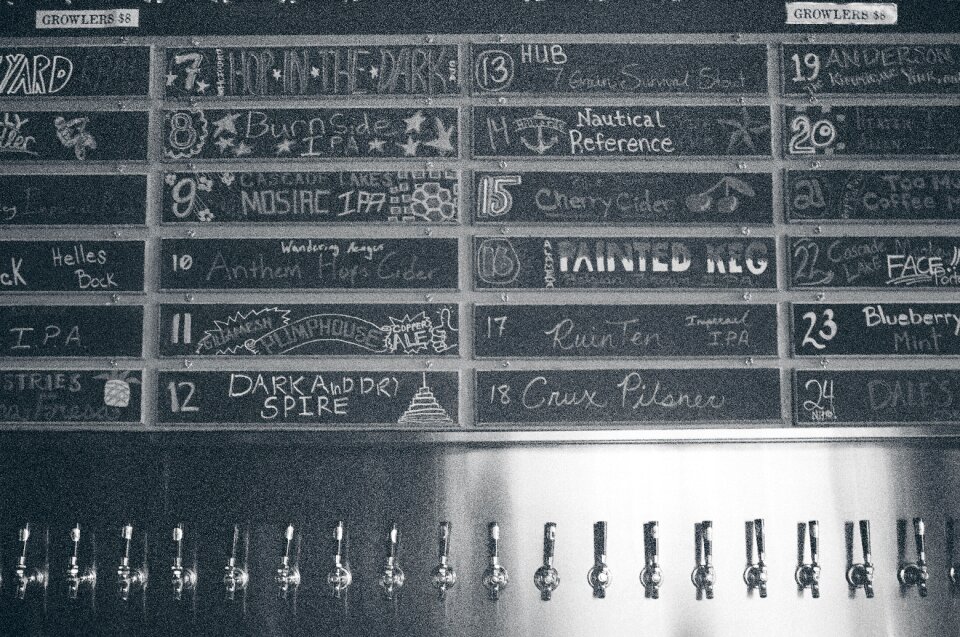 GROWLERS $8
GROWLERS $8
YARD
Helles
CK Bock
IPA
STRIES
7 HOP-IN-THE-DARK
8 BurnSide
IPA
9 CASCADE LAKES
MOSIAC IPA
Wandering Aengus
10 Anthem Hops Cider
11 GILGAMESH
COPPER
ALE
12 DARK AnD DRY
SPIRE
13 HUB
7 Grain Survival Stout
14 Nautical
Reference
15 Cherry Cider
PAINTED KEG
17 RuinTen Imperial
IPA
18 Crux Pilsner
19 ANDERSON
20
21 TOO M
Coffee
22 Cascade
LAKE FACE
23 Blueberry
Mint
24 DALE'S